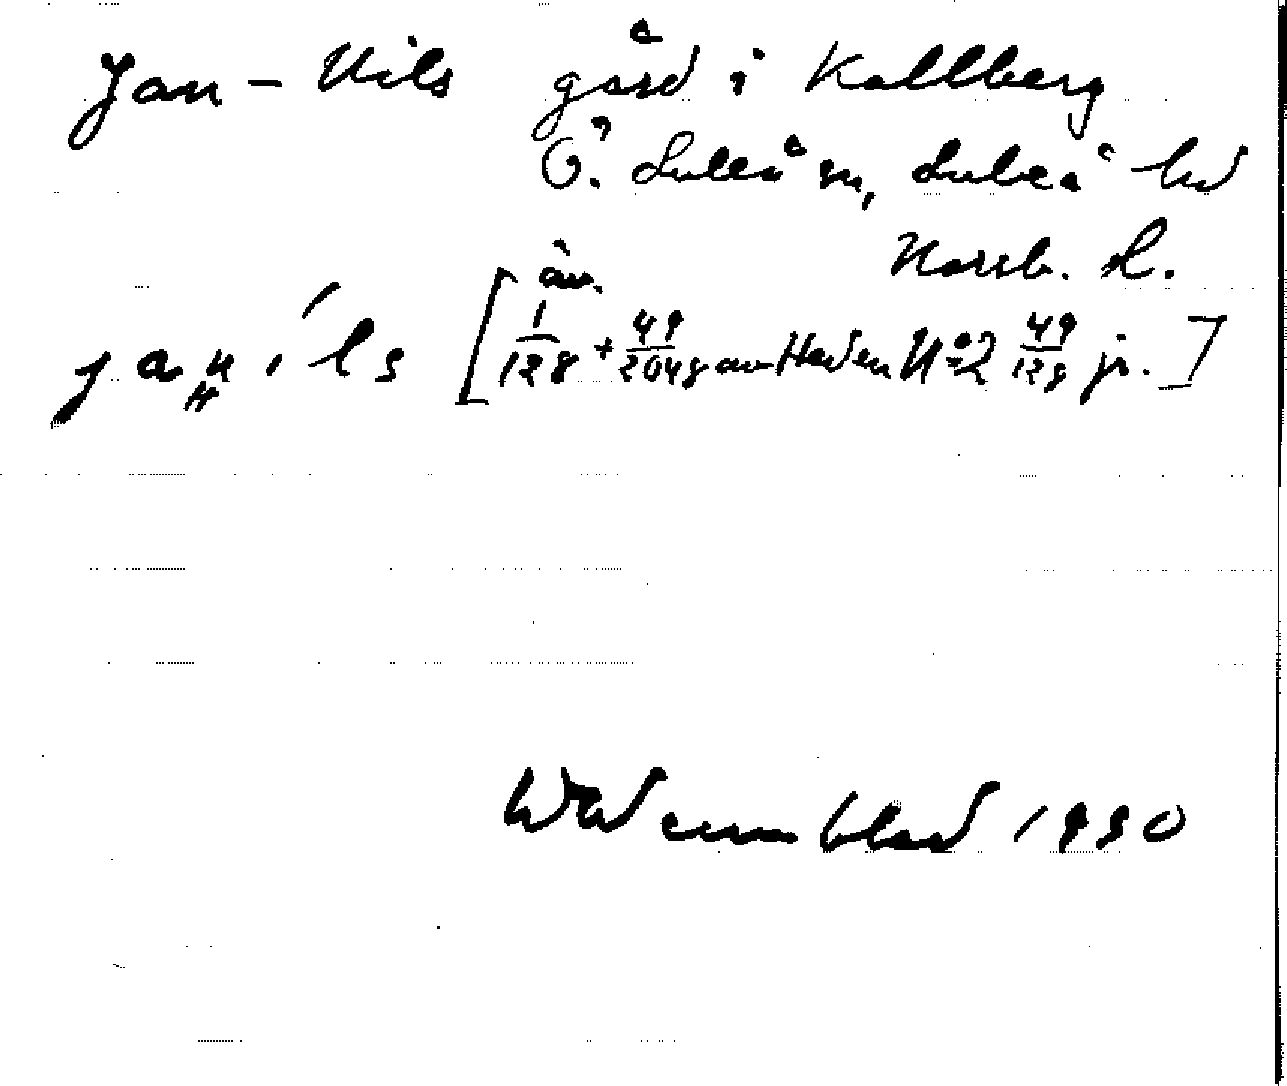 Jan-Nils gård i Kallberg
Ö. Luleå sn, Luleå hd
Norrb. l.
jan ́ils [äv. 1/128 + 49/2048 av Heden No 2 49/128 jr.]
Wdernblad 1990